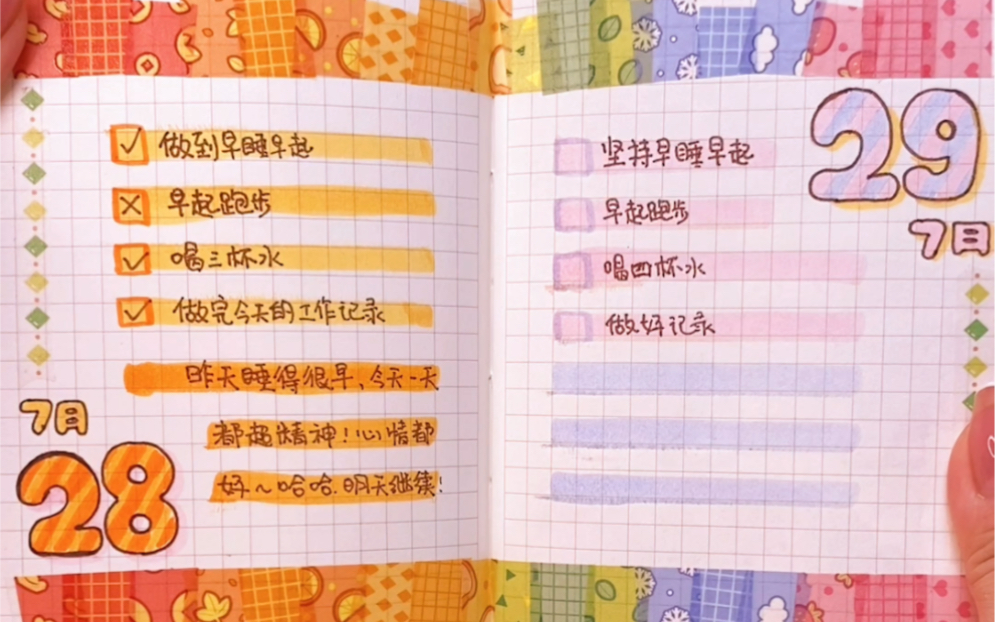 做到早睡早起
早起跑步
喝三杯水
做完今天的工作记录
昨天睡得很早,今天一天
都超精神!心情都
好~哈哈.明天继续!
7月
28
29
7月
坚持早睡早起
早起跑步
喝四杯水
做好记录